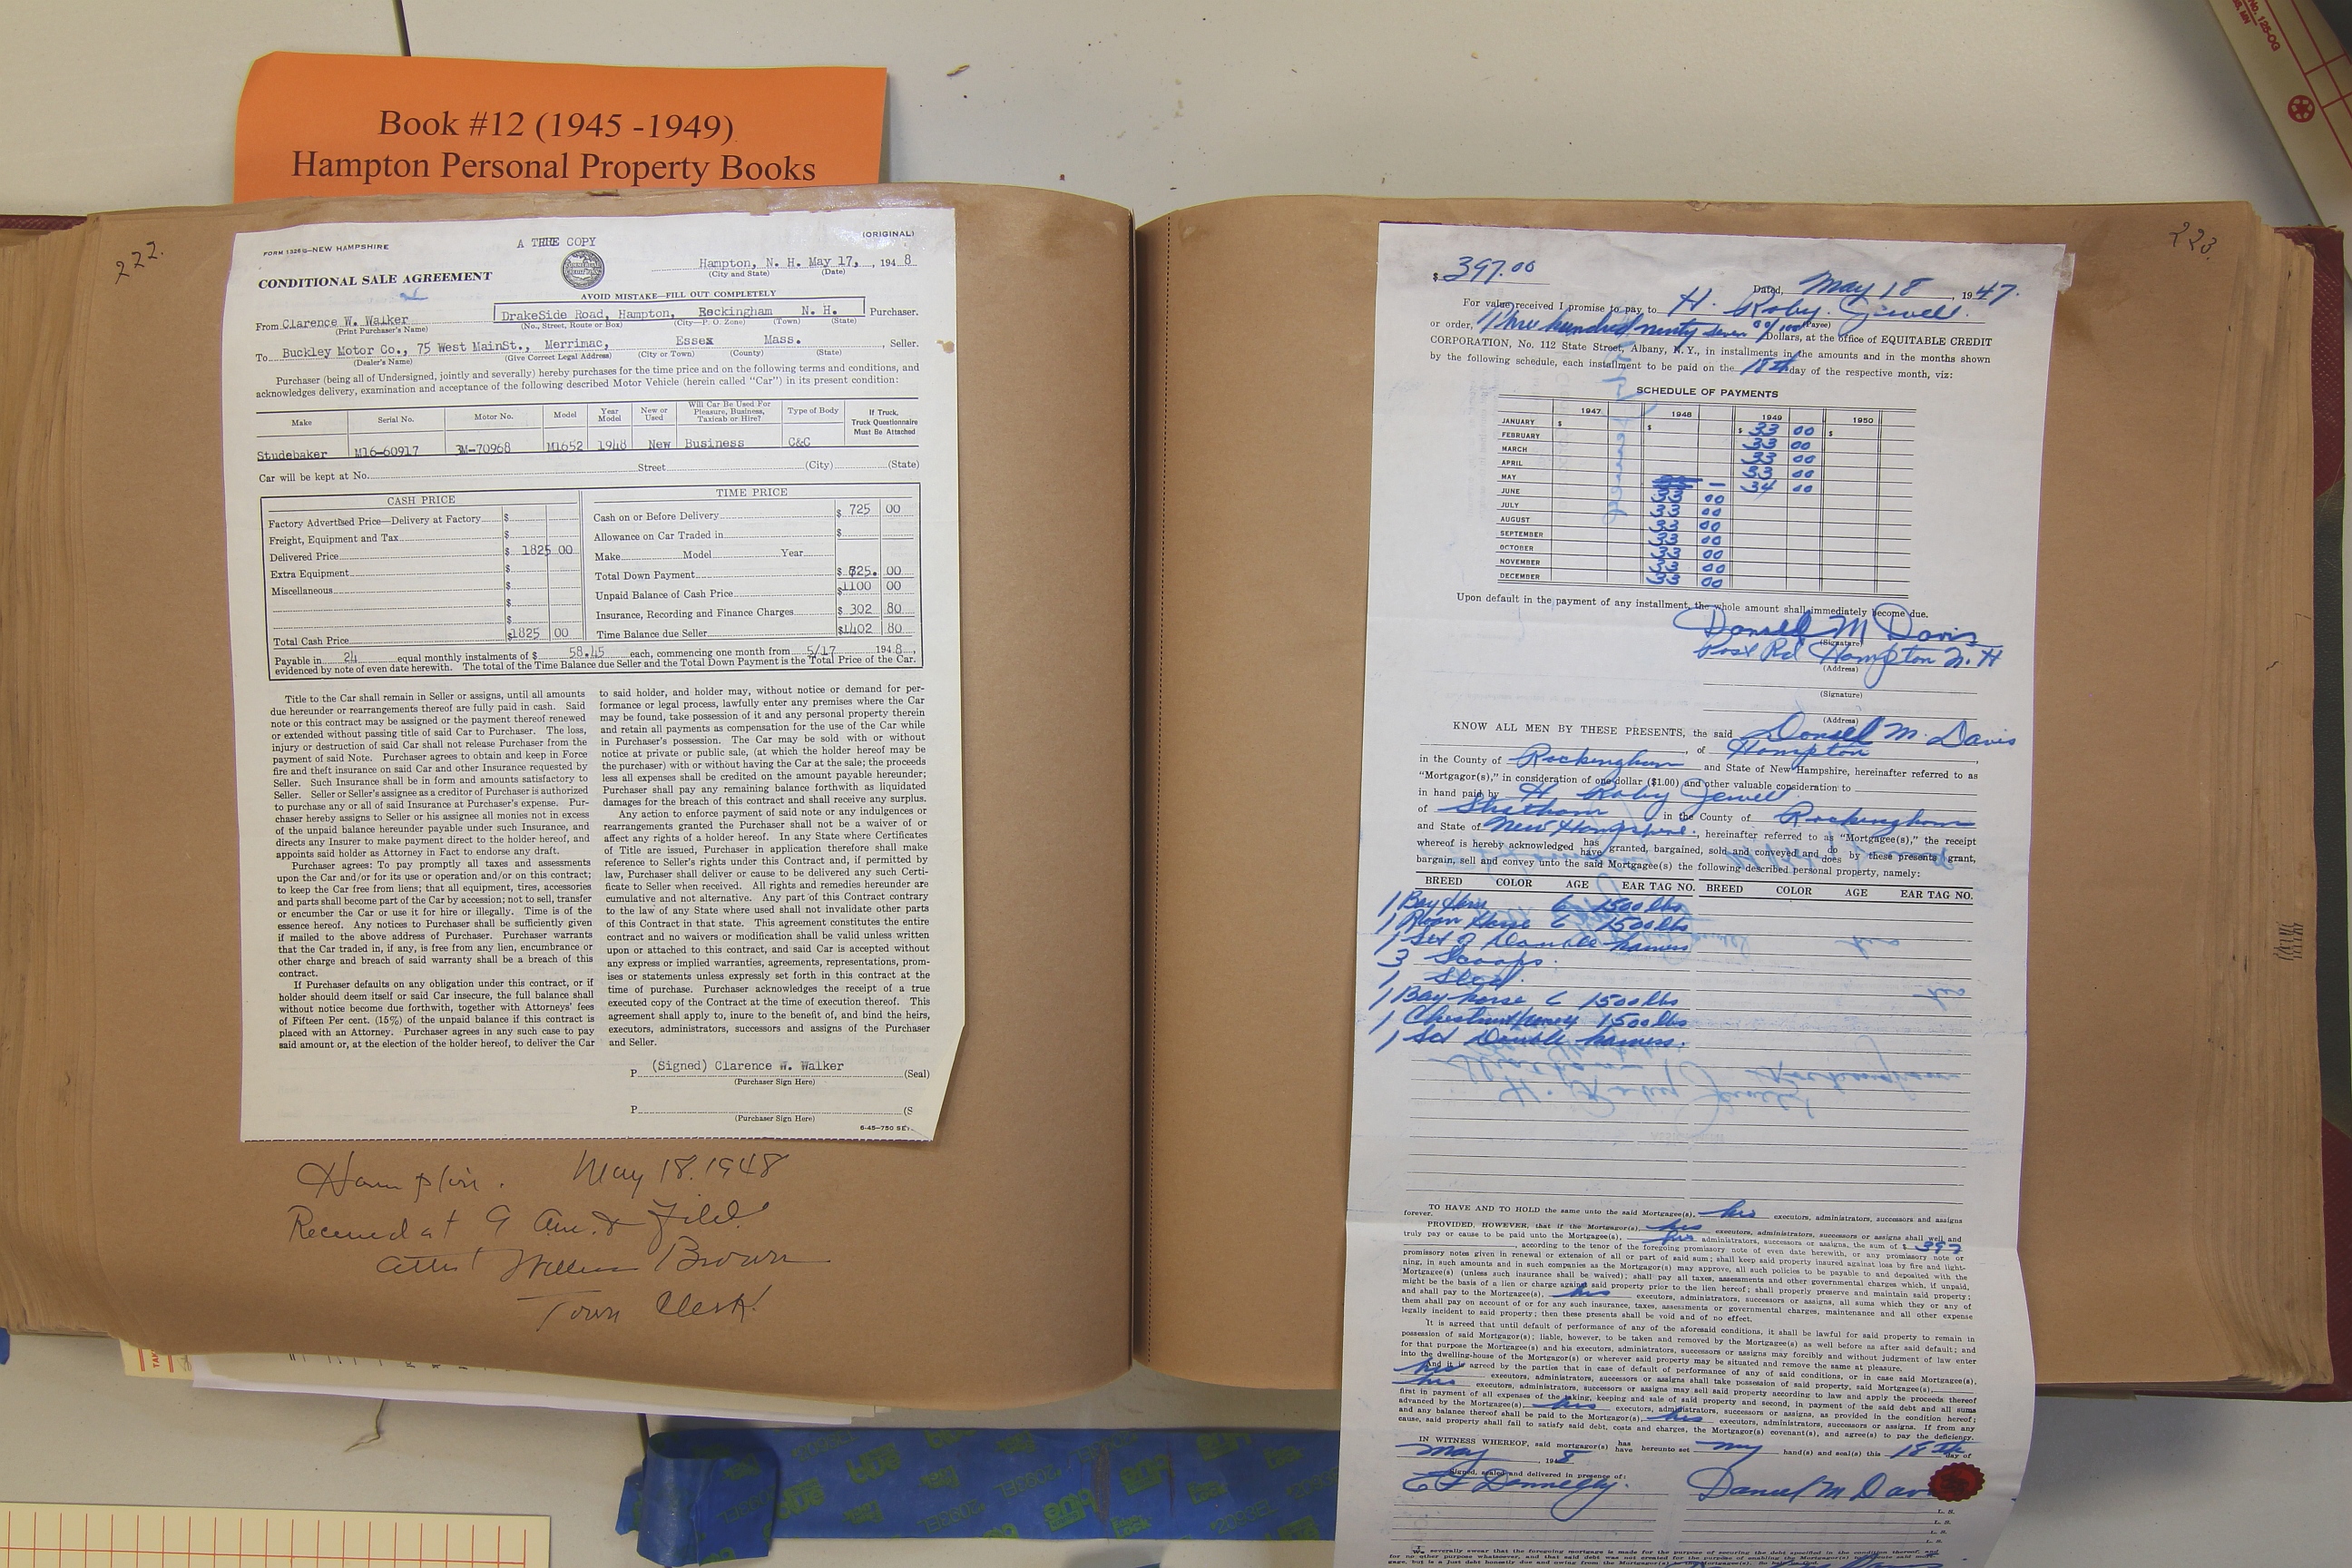 Book #12 (1945 -1949)
Hampton Personal Property Books
222.
FORM 1326½—NEW HAMPSHIRE
A TRUE COPY
(ORIGINAL)
CONDITIONAL SALE AGREEMENT
Hampton, N. H. May 17, , 194 8
(City and State) (Date)
AVOID MISTAKE—FILL OUT COMPLETELY
From Clarence W. Walker DrakeSide Road, Hampton, Rockingham N. H. Purchaser.
(Print Purchaser's Name) (No., Street, Route or Box) (City—P. O. Zone) (Town) (State)
To Buckley Motor Co., 75 West MainSt., Merrimac, Essex Mass. , Seller.
(Dealer's Name) (Give Correct Legal Address) (City or Town) (County) (State)
Purchaser (being all of Undersigned, jointly and severally) hereby purchases for the time price and on the following terms and conditions, and
acknowledges delivery, examination and acceptance of the following described Motor Vehicle (herein called "Car") in its present condition:
Make Serial No. Motor No. Model Year Model New or Used Will Car Be Used For Pleasure, Business, Taxicab or Hire? Type of Body If Truck, Truck Questionnaire Must Be Attached
Studebaker M16-60917 3M-70968 M1652 1948 New Business C&C
Car will be kept at No. Street (City) (State)
CASH PRICE
Factory Advertised Price—Delivery at Factory $
Freight, Equipment and Tax
Delivered Price $ 1825 00
Extra Equipment $
Miscellaneous $
$
$
Total Cash Price $1825 00
TIME PRICE
Cash on or Before Delivery $ 725 00
Allowance on Car Traded in $
Make Model Year
Total Down Payment $ 725. 00
Unpaid Balance of Cash Price $1100 00
Insurance, Recording and Finance Charges $ 302 80
Time Balance due Seller $1402 80
Payable in 24 equal monthly instalments of $ 58.45 each, commencing one month from 5/17 194 8,
evidenced by note of even date herewith. The total of the Time Balance due Seller and the Total Down Payment is the Total Price of the Car.
Title to the Car shall remain in Seller or assigns, until all amounts
due hereunder or rearrangements thereof are fully paid in cash. Said
note or this contract may be assigned or the payment thereof renewed
or extended without passing title of said Car to Purchaser. The loss,
injury or destruction of said Car shall not release Purchaser from the
payment of said Note. Purchaser agrees to obtain and keep in Force
fire and theft insurance on said Car and other Insurance requested by
Seller. Such Insurance shall be in form and amounts satisfactory to
Seller. Seller or Seller's assignee as a creditor of Purchaser is authorized
to purchase any or all of said Insurance at Purchaser's expense. Pur-
chaser hereby assigns to Seller or his assignee all monies not in excess
of the unpaid balance hereunder payable under such Insurance, and
directs any Insurer to make payment direct to the holder hereof, and
appoints said holder as Attorney in Fact to endorse any draft.
Purchaser agrees: To pay promptly all taxes and assessments
upon the Car and/or for its use or operation and/or on this contract;
to keep the Car free from liens; that all equipment, tires, accessories
and parts shall become part of the Car by accession; not to sell, transfer
or encumber the Car or use it for hire or illegally. Time is of the
essence hereof. Any notices to Purchaser shall be sufficiently given
if mailed to the above address of Purchaser. Purchaser warrants
that the Car traded in, if any, is free from any lien, encumbrance or
other charge and breach of said warranty shall be a breach of this
contract.
If Purchaser defaults on any obligation under this contract, or if
holder should deem itself or said Car insecure, the full balance shall
without notice become due forthwith, together with Attorneys' fees
of Fifteen Per cent. (15%) of the unpaid balance if this contract is
placed with an Attorney. Purchaser agrees in any such case to pay
said amount or, at the election of the holder hereof, to deliver the Car
to said holder, and holder may, without notice or demand for per-
formance or legal process, lawfully enter any premises where the Car
may be found, take possession of it and any personal property therein
and retain all payments as compensation for the use of the Car while
in Purchaser's possession. The Car may be sold with or without
notice at private or public sale, (at which the holder hereof may be
the purchaser) with or without having the Car at the sale; the proceeds
less all expenses shall be credited on the amount payable hereunder;
Purchaser shall pay any remaining balance forthwith as liquidated
damages for the breach of this contract and shall receive any surplus.
Any action to enforce payment of said note or any indulgences or
rearrangements granted the Purchaser shall not be a waiver of or
affect any rights of a holder hereof. In any State where Certificates
of Title are issued, Purchaser in application therefore shall make
reference to Seller's rights under this Contract and, if permitted by
law, Purchaser shall deliver or cause to be delivered any such Certi-
ficate to Seller when received. All rights and remedies hereunder are
cumulative and not alternative. Any part of this Contract contrary
to the law of any State where used shall not invalidate other parts
of this Contract in that state. This agreement constitutes the entire
contract and no waivers or modification shall be valid unless written
upon or attached to this contract, and said Car is accepted without
any express or implied warranties, agreements, representations, prom-
ises or statements unless expressly set forth in this contract at the
time of purchase. Purchaser acknowledges the receipt of a true
executed copy of the Contract at the time of execution thereof. This
agreement shall apply to, inure to the benefit of, and bind the heirs,
executors, administrators, successors and assigns of the Purchaser
and Seller.
P (Signed) Clarence W. Walker (Seal)
(Purchaser Sign Here)
P (S
(Purchaser Sign Here)
6-45-750 SE
Hampton. May 18. 1948
Received at 9 Am. & Filed
Attest William Brown
Town Clerk
223.
$ 397.00
Dated, May 18 , 1947.
For value received I promise to pay to H. Roby Jewell.
or order, Three hundred ninety seven 00/100 (Payee) Dollars, at the office of EQUITABLE CREDIT
CORPORATION, No. 112 State Street, Albany, N. Y., in installments in the amounts and in the months shown
by the following schedule, each installment to be paid on the 18th day of the respective month, viz:
SCHEDULE OF PAYMENTS
1947 1948 1949 1950
JANUARY $ $ $ 33 00 $
FEBRUARY 33 00
MARCH 33 00
APRIL 33 00
MAY 34 00
JUNE 33 00
JULY 33 00
AUGUST 33 00
SEPTEMBER 33 00
OCTOBER 33 00
NOVEMBER 33 00
DECEMBER 33 00
Upon default in the payment of any installment, the whole amount shall immediately become due.
Donald M Davis
(Signature)
Post Rd Hampton N. H
(Address)
(Signature)
(Address)
KNOW ALL MEN BY THESE PRESENTS, the said Donald M. Davis
, of Hampton
in the County of Rockingham and State of New Hampshire, hereinafter referred to as
"Mortgagor(s)," in consideration of one dollar ($1.00) and other valuable consideration to
in hand paid by H Roby Jewell
of Stratham in the County of Rockingham
and State of New Hampshire, hereinafter referred to as "Mortgagee(s)," the receipt
whereof is hereby acknowledged has have granted, bargained, sold and conveyed and do does by these presents grant,
bargain, sell and convey unto the said Mortgagee(s) the following described personal property, namely:
BREED COLOR AGE EAR TAG NO. BREED COLOR AGE EAR TAG NO.
1 Bay Horse 6 1500 lbs
1 Roan Horse 6 1500 lbs
1 Set of Double harness
3 Scoops.
1 Sled.
1 Bay horse 6 1500 lbs
1 Chestnut 1500 lbs
1 Set Double harness.
TO HAVE AND TO HOLD the same unto the said Mortgagee(s), his executors, administrators, successors and assigns
forever.
PROVIDED, HOWEVER, that if the Mortgagor(s), his executors, administrators, successors or assigns shall well and
truly pay or cause to be paid unto the Mortgagee(s), his administrators, successors or assigns, the sum of $ 397
, according to the tenor of the foregoing promissory note of even date herewith, or any promissory note or
promissory notes given in renewal or extension of all or part of said sum; shall keep said property insured against loss by fire and light-
ning, in such amounts and in such companies as the Mortgagee(s) may approve, all such policies to be payable to and deposited with the
Mortgagee(s) (unless such insurance shall be waived); shall pay all taxes, assessments and other governmental charges which, if unpaid,
might be the basis of a lien or charge against said property prior to the lien hereof; shall properly preserve and maintain said property;
and shall pay to the Mortgagee(s), his executors, administrators, successors or assigns, all sums which they or any of
them shall pay on account of or for any such insurance, taxes, assessments or governmental charges, maintenance and all other expense
legally incident to said property; then these presents shall be void and of no effect.
It is agreed that until default of performance of any of the aforesaid conditions, it shall be lawful for said property to remain in
possession of said Mortgagor(s); liable, however, to be taken and removed by the Mortgagee(s) as well before as after said default; and
for that purpose the Mortgagee(s) and his executors, administrators, successors or assigns may forcibly and without judgment of law enter
into the dwelling-house of the Mortgagor(s) or wherever said property may be situated and remove the same at pleasure.
And it is agreed by the parties that in case of default of performance of any of said conditions, or in case said Mortgagee(s),
his executors, administrators, successors or assigns shall take possession of said property, said Mortgagee(s),
his executors, administrators, successors or assigns may sell said property according to law and apply the proceeds thereof
first in payment of all expenses of the taking, keeping and sale of said property and second, in payment of the said debt and all sums
advanced by the Mortgagee(s), his executors, administrators, successors or assigns, as provided in the condition hereof;
and any balance thereof shall be paid to the Mortgagor(s), his executors, administrators, successors or assigns. If from any
cause, said property shall fail to satisfy said debt, costs and charges, the Mortgagor(s) covenant(s), and agree(s) to pay the deficiency.
IN WITNESS WHEREOF, said mortgagor(s) has have hereunto set my hand(s) and seal(s) this 18th day of
May , 1948
Signed, sealed and delivered in presence of:
Donnelly. Daniel M Dav
L. S.
L. S.
L. S.
L. S.
We severally swear that the foregoing mortgage is made for the purpose of securing the debt specified in the condition thereof, and
for no other purpose whatsoever, and that said debt was not created for the purpose of enabling the Mortgagor(s) to